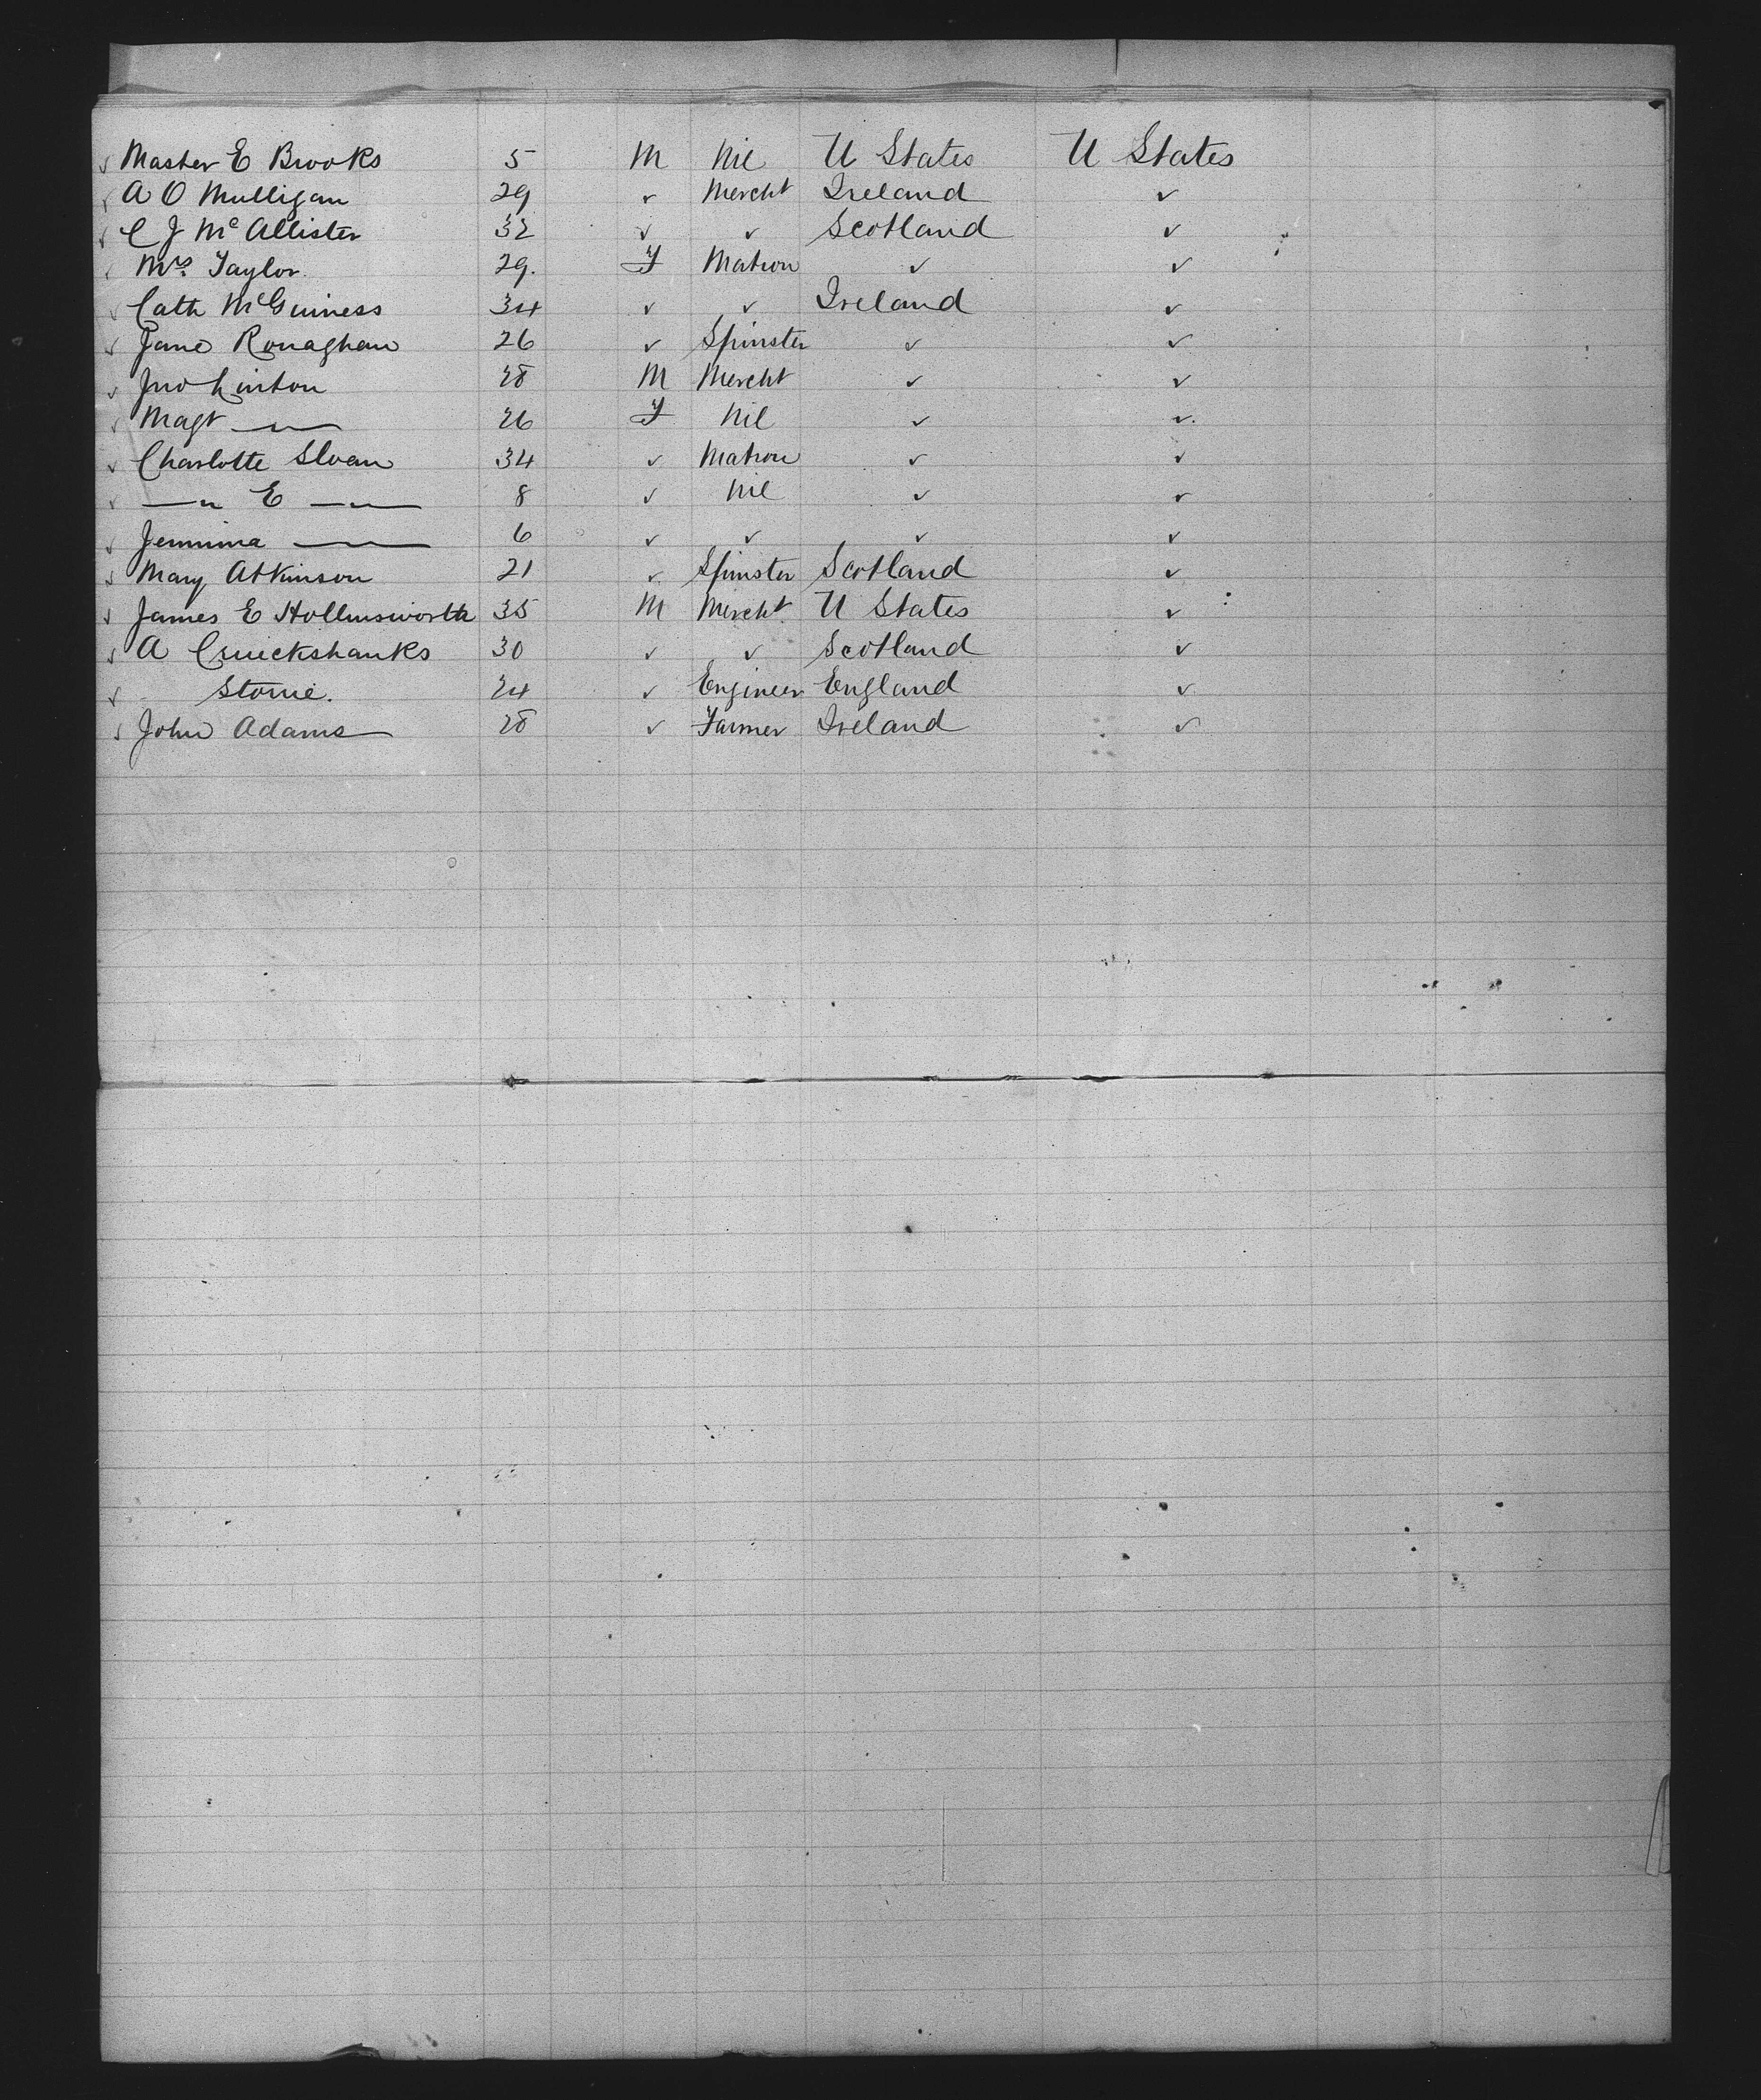 ✓ Master E Brooks 5 M Nil U States U States
✓ A O Mulligan 29 ✓ Mercht Ireland ✓
✓ C J Mc Allister 32 ✓ ✓ Scotland ✓
✓ Mrs Taylor. 29. F Matron ✓ ✓
✓ Cath McGuiness 34 ✓ ✓ Ireland ✓
✓ Jane Ronaghan 26 ✓ Spinster ✓ ✓
✓ Jno Linton 28 M Mercht ✓ ✓
✓ Magt —"— 26 F Nil ✓ ✓
✓ Charlotte Sloan 34 ✓ Matron ✓ ✓
✓ —"— E —"— 8 ✓ Nil ✓ ✓
✓ Jemmima —"— 6 ✓ ✓ ✓ ✓
✓ Mary Atkinson 21 ✓ Spinster Scotland ✓
✓ James E Hollinsworth 35 M Mercht U States ✓
✓ A Cruickshanks 30 ✓ ✓ Scotland ✓
✓ Storrie. 24 ✓ Engineer England ✓
✓ John Adams 28 ✓ Farmer Ireland ✓